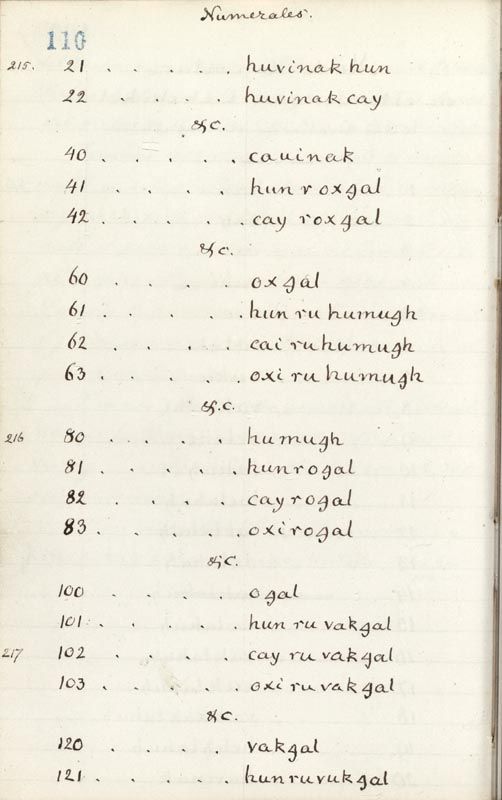 Numerales.
110
215. 21 . . . . . huvinak hun
22 . . . . huvinak cay
&c.
40 . . . . . cauinak
41 . . . . . hun r oxgal
42 . . . . . cay roxgal
&c.
60 . . . . . oxgal
61 . . . . . hun ru humugh
62 . . . . . cai ru humugh
63 . . . . . oxi ru humugh
&.c.
216 80 . . . . . humugh
81 . . . . . hun rogal
82 . . . . . cay rogal
83 . . . . . oxi rogal
&c.
100 . . . . ogal
101 . . . . . hun ru vakgal
217 102 . . . . cay ru vakgal
103 . . . . oxi ru vakgal
&c.
120 . . . . vakgal
121 . . . . hun ru vukgal